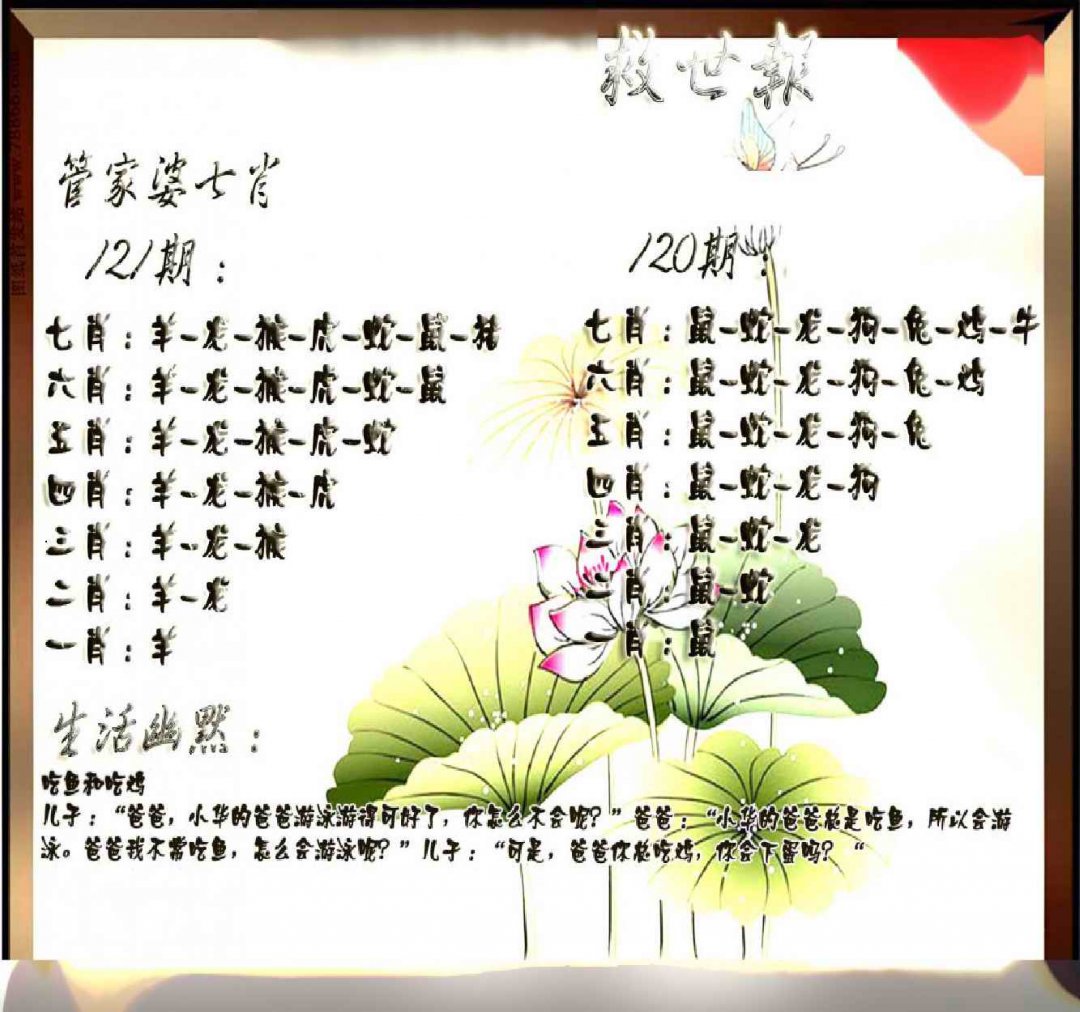 救世報
管家婆七肖
121期：
七肖：羊-龙-猴-虎-蛇-鼠-猪
六肖：羊-龙-猴-虎-蛇-鼠
五肖：羊-龙-猴-虎-蛇
四肖：羊-龙-猴-虎
三肖：羊-龙-猴
二肖：羊-龙
一肖：羊
120期：
七肖：鼠-蛇-龙-狗-兔-鸡-牛
六肖：鼠-蛇-龙-狗-兔-鸡
五肖：鼠-蛇-龙-狗-兔
四肖：鼠-蛇-龙-狗
三肖：鼠-蛇-龙
二肖：鼠-蛇
一肖：鼠
生活幽默：
吃鱼和吃鸡
儿子：“爸爸，小华的爸爸游泳游得可好了，你怎么不会呢？”爸爸：“小华的爸爸总是吃鱼，所以会游
泳。爸爸我不常吃鱼，怎么会游泳呢？”儿子：“可是，爸爸你总吃鸡，你会下蛋吗？“